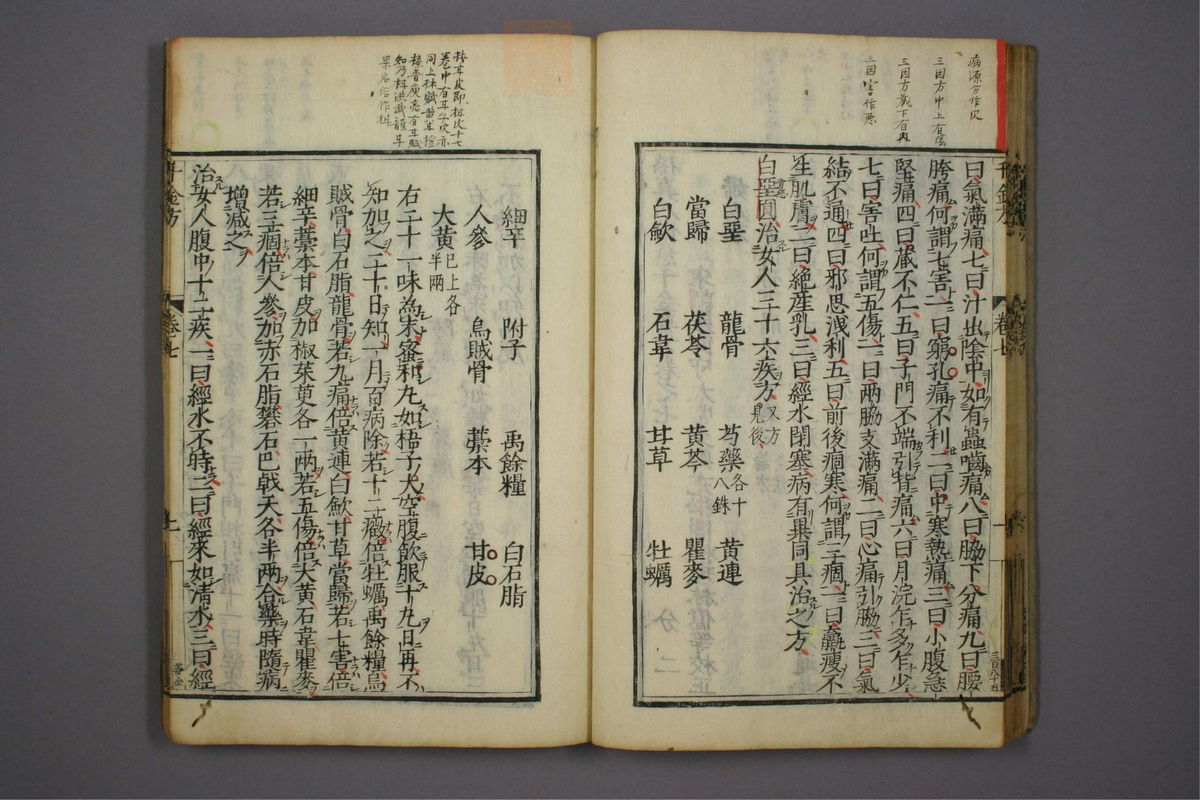 病源方作次
三因方中上有陰
三因方氣下有冉
三因害作悪
曰氣滿痛七曰汁出陰中如有蟲嚙痛八曰脇下分痛九曰腰
胯痛何謂七害一曰窮孔痛不利二曰中寒熱痛三曰小腹急
堅痛四曰藏不仁五曰子門不端引背痛六曰月浣乍多乍少
七曰害吐何謂五傷一曰兩脇支滿痛二曰心痛引脇三曰氣
結不通四曰邪思洩利五曰前後痼寒何謂三痼一曰羸瘦不
生肌膚二曰絶産乳三曰經水閉塞病有異同具治之方
白堊圓治女人三十六疾方又方見後
白堊 龍骨 芍藥各十八銖 黃連
當歸 茯苓 黃芩 瞿麥
白斂 石韋 甘草 牡蠣
細辛 附子 禹餘糧 白石脂
人參 烏賊骨 藁本 甘皮
大黃已上各半兩
右二十一味為末蜜和丸如梧子大空腹飲服十九日再不
知加之二十日知一月百病除若十二癥倍牡蠣禹餘糧烏
賊骨白石脂龍骨若九痛倍黃連白斂甘草當歸若七害倍
細辛藁本甘皮加椒茱萸各一兩若五傷倍大黃石韋瞿麥
若三痼倍人參加赤石脂礬石巴戟天各半兩合藥時隨病
增減之
治女人腹中十二疾一曰經水不時二曰經來如清水三曰經
千金方
卷七
千金方
卷七
一